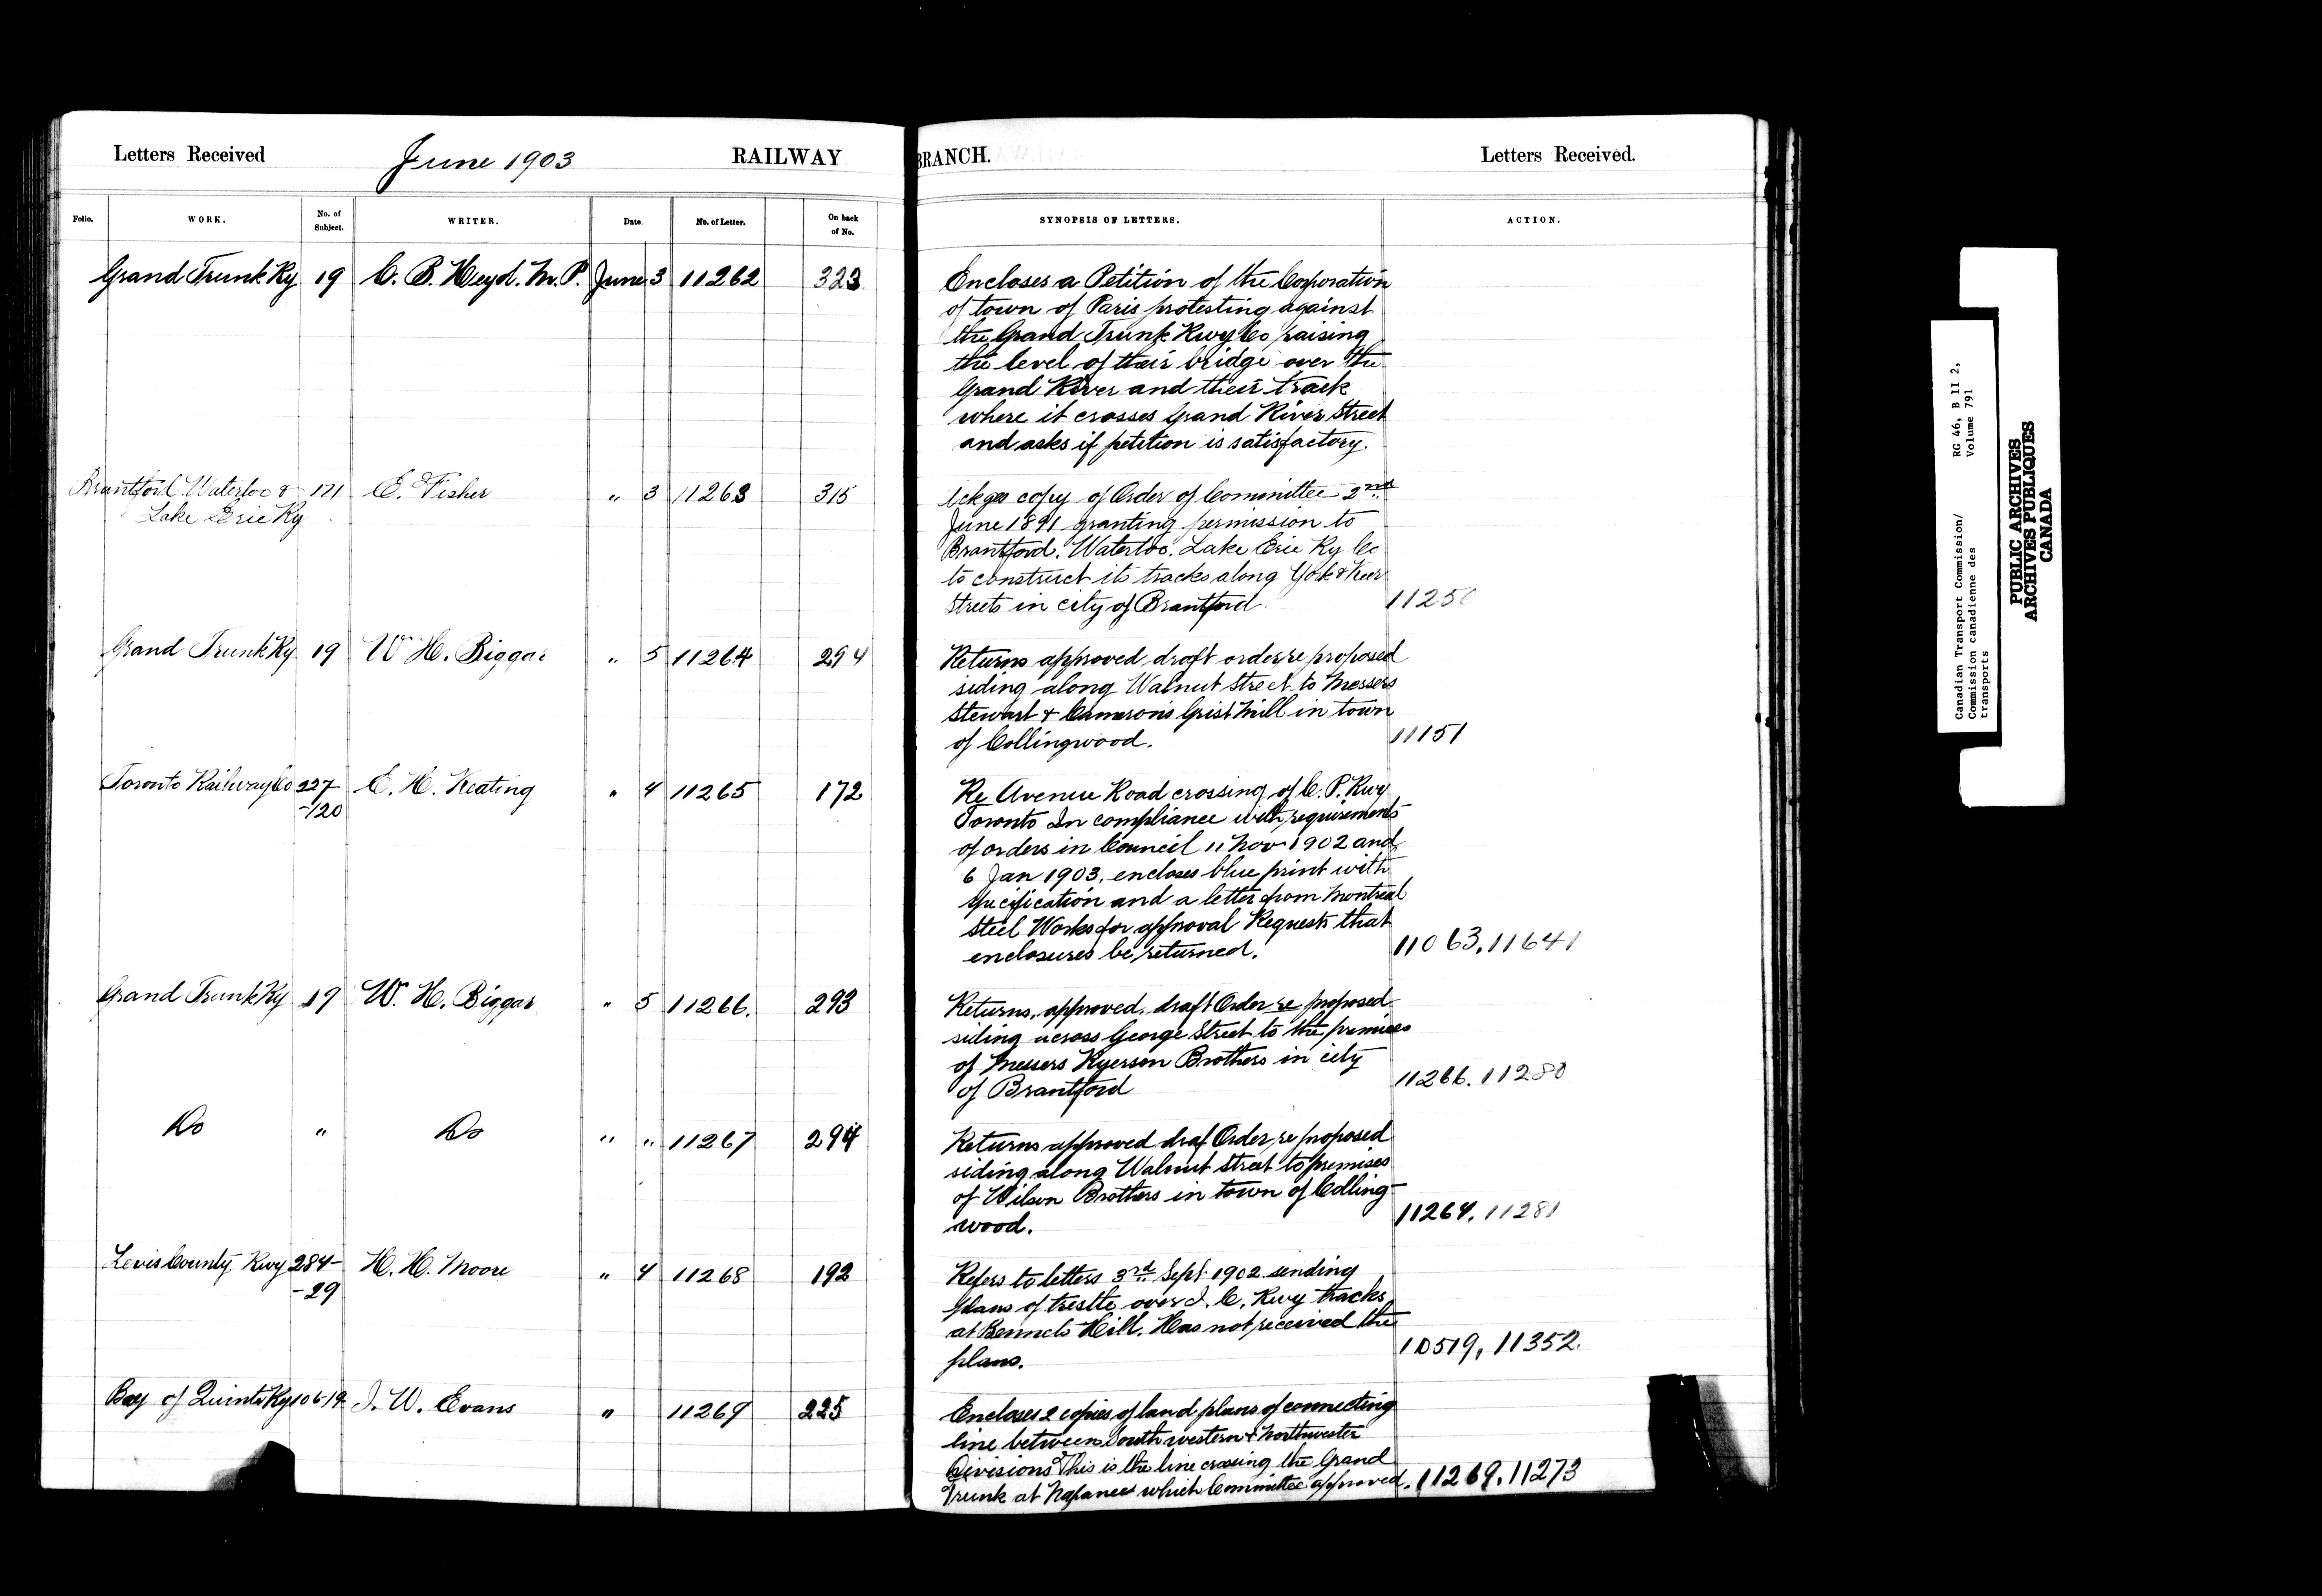 Letters Received
June 1903
RAILWAY
BRANCH.
Letters Received.
Folio.
WORK.
No. of Subject.
WRITER.
Date.
No. of Letter.
On back of No.
SYNOPSIS OF LETTERS.
ACTION.
Grand Trunk Ry 19 C. B. Heyd. M. P. June 3 11262 323
Encloses a Petition of the Corporation
of town of Paris protesting against
the Grand Trunk Rwy Co raising
the level of their bridge over the
Grand River and their track
where it crosses Grand River Street
and asks if petition is satisfactory.
Brantford Waterloo & 171 E. Fisher " 3 11263 315
Lake Erie Ry
Ackges copy of Order of Committee 2nd
June 1891 granting permission to
Brantford. Waterloo. Lake Erie Ry Co
to construct its tracks along York &
Streets in city of Brantford.
11250
Grand Trunk Ry 19 W H. Biggar " 5 11264 294
Returns approved draft order re proposed
siding along Walnut Street to Messers
Stewart & Cameron's Grist Mill in town
of Collingwood.
11151
Toronto Railway Co 227 E. H. Keating " 4 11265 172
-120
Re Avenue Road crossing of C. P. Rwy
Toronto In compliance with requirements
of orders in Council 11 Nov 1902 and
6 Jan 1903, encloses blue print with
specification and a letter from Montreal
Steel Works for approval Requests that
enclosures be returned.
11063, 11641
Grand Trunk Ry 19 W. H. Biggar " 5 11266. 293
Returns, approved, draft Order re proposed
siding across George Street to the premises
of Messers Ryerson Brothers in city
of Brantford
11266. 11280
Do " Do " " 11267 294
Returns approved draf Order, re proposed
siding along Walnut Street to premises
of Wilson Brothers in town of Colling-
wood.
11264, 11281
Levis County Rwy 284- H. H. Moore " 4 11268 192
-29
Refers to letters 3rd Sept 1902 sending
plans of trestle over I. C. Rwy tracks
at Hill. Has not received the
plans.
10519, 11352.
Bay of Quinte Ry 106-19 J. W. Evans " 11269 225
Encloses 2 copies of land plans of connecting
line between South western & Northwester
Divisions This is the line crossing the Grand
Trunk at Napanee which Committee approved.
11269, 11273
Canadian Transport Commission/
Commission canadienne des
transports
RG 46, B II 2,
Volume 791
PUBLIC ARCHIVES
ARCHIVES PUBLIQUES
CANADA